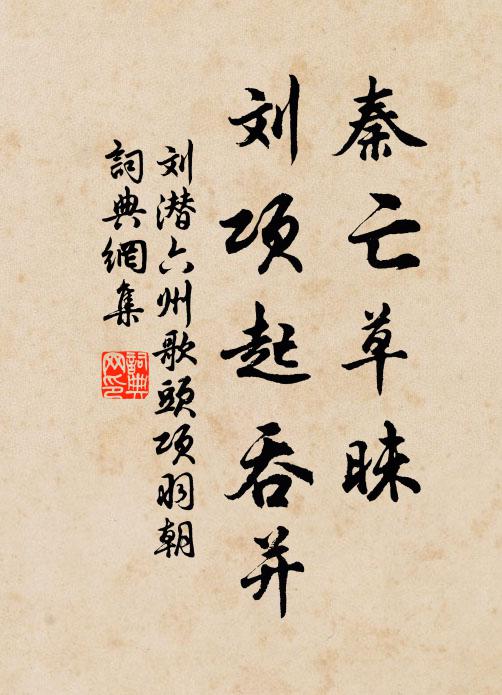 秦亡草昧
刘项起吞并
刘潜六州歌头项羽朝
词典網集
詞典網印